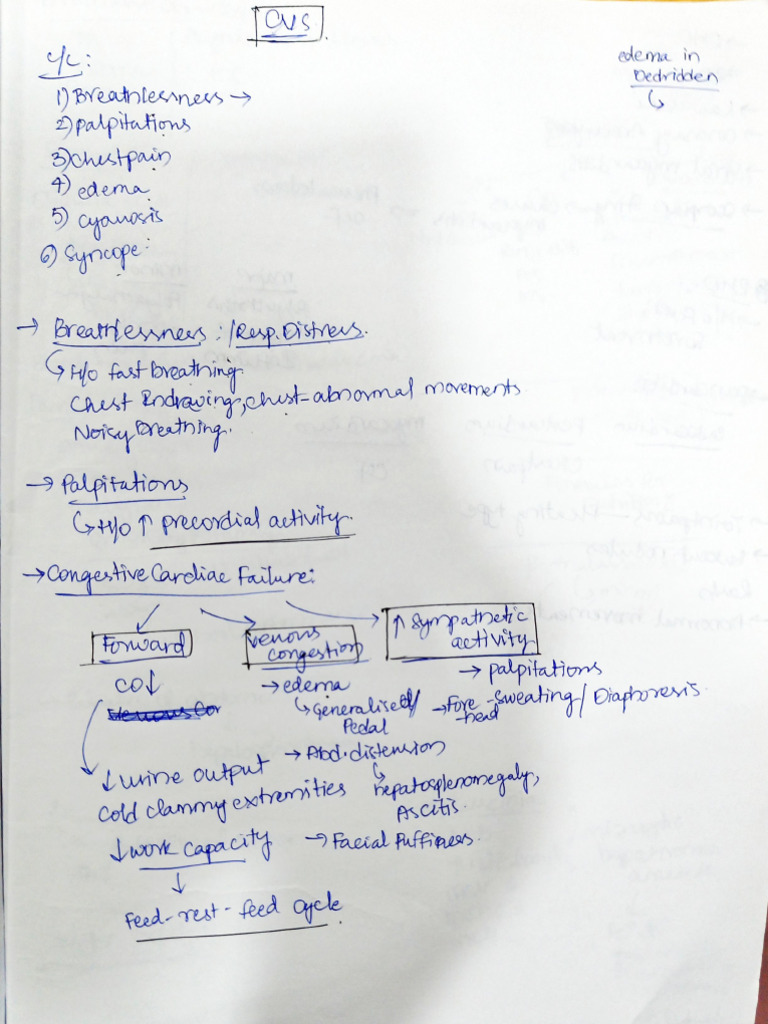 CVS
C/C:
edema in
Bedridden
1) Breathlessness →
2) palpitations
3) chestpain
4) edema
5) cyanosis
6) Syncope:
→ Breathlessness: /Resp. Distress.
↳ H/o fast breathing
Chest Indrawing, chest-abnormal movements
Noisy Breathing.
→ Palpitations
↳ H/o ↑ precordial activity.
→ Congestive Cardiac Failure:
Forward
CO↓
↓ urine output
cold clammy extremities
↓ work capacity
↓
Feed-rest-feed cycle
venous
congestion
→ edema
↳ Generalised/
Pedal
→ Abd. distension
↳ hepatosplenomegaly,
Ascitis.
→ Facial Puffiness.
↑ Sympathetic
activity
→ palpitations
→ Fore-head -sweating/Diaphoresis.